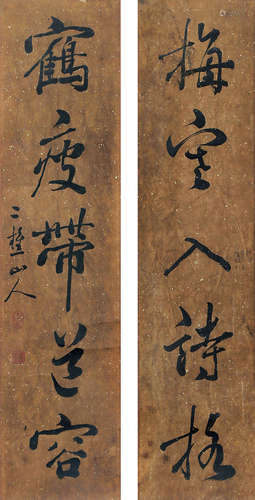 梅寒入詩格
鶴瘦帶道容
二樵山人